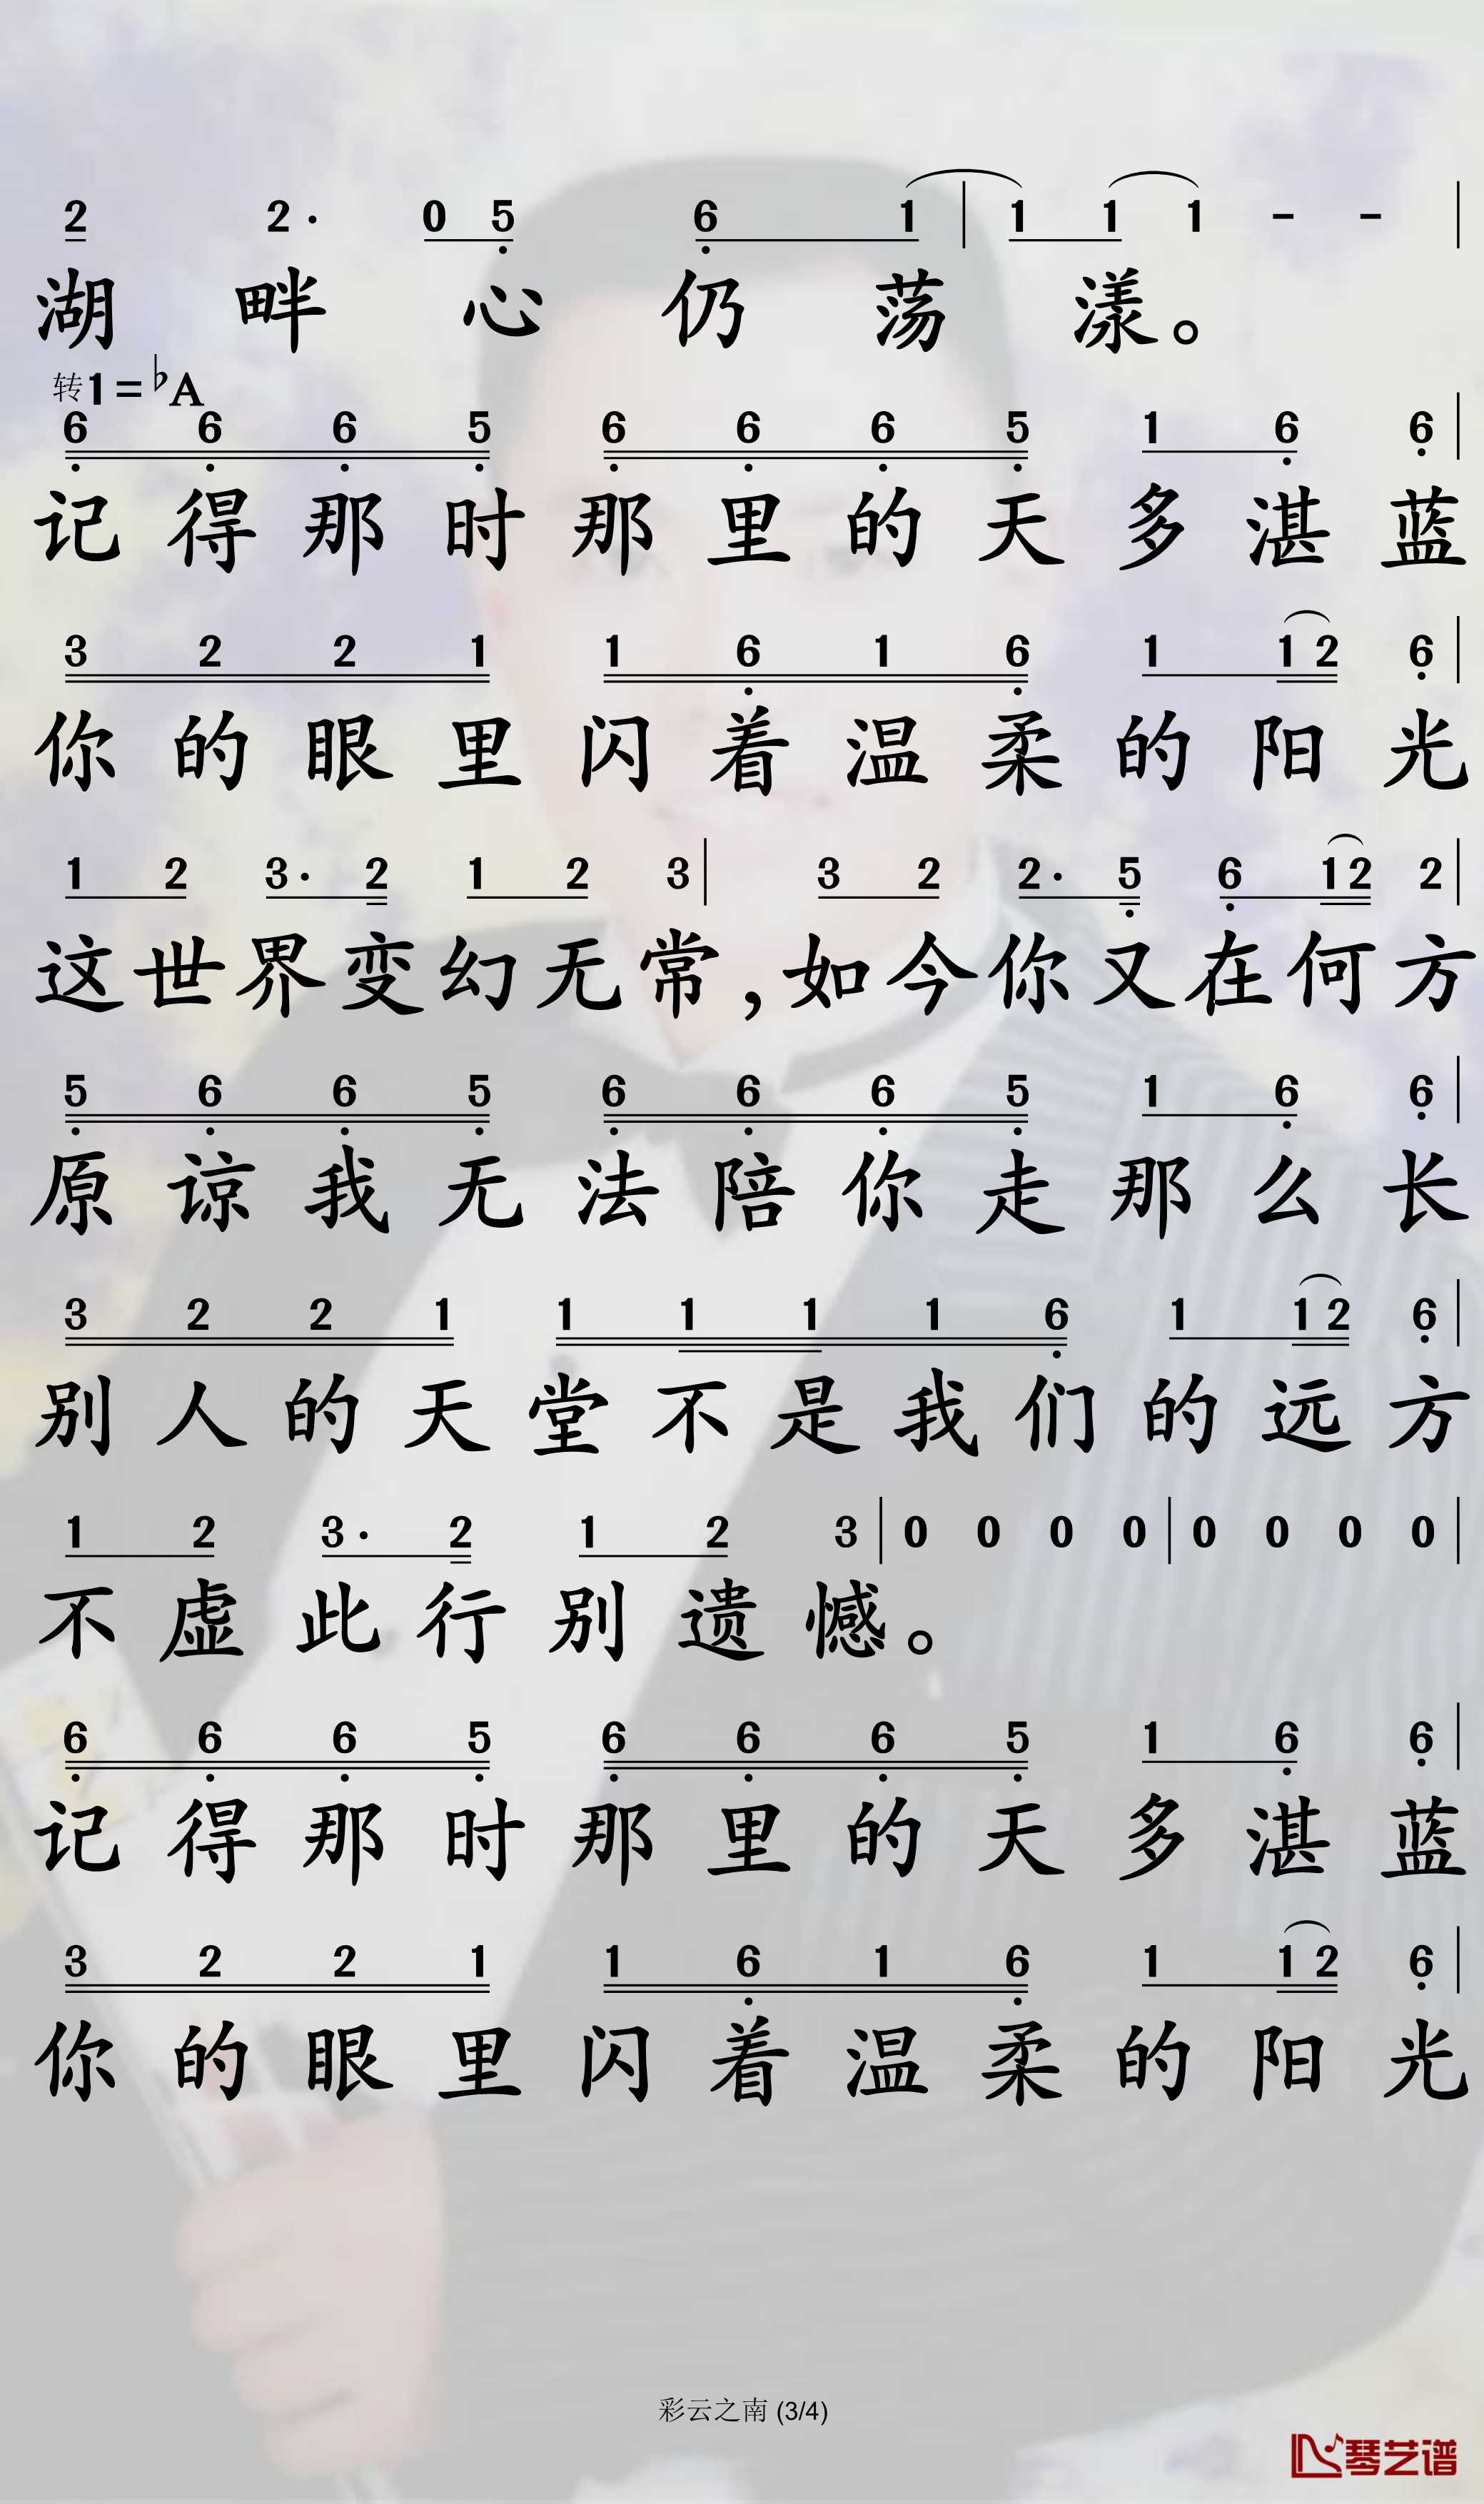 2 2· 0 5 6 1 | 1 1 1 – – |
湖畔心仍荡漾。
转1=♭A
6 6 6 5 6 6 6 5 1 6 6 |
记得那时那里的天多湛蓝
3 2 2 1 1 6 1 6 1 1 2 6 |
你的眼里闪着温柔的阳光
1 2 3· 2 1 2 3 | 3 2 2· 5 6 1 2 2 |
这世界变幻无常,如今你又在何方
5 6 6 5 6 6 6 5 1 6 6 |
原谅我无法陪你走那么长
3 2 2 1 1 1 1 1 6 1 1 2 6 |
别人的天堂不是我们的远方
1 2 3· 2 1 2 3 | 0 0 0 0 | 0 0 0 0 |
不虚此行别遗憾。
6 6 6 5 6 6 6 5 1 6 6 |
记得那时那里的天多湛蓝
3 2 2 1 1 6 1 6 1 1 2 6 |
你的眼里闪着温柔的阳光
彩云之南 (3/4)
琴艺谱